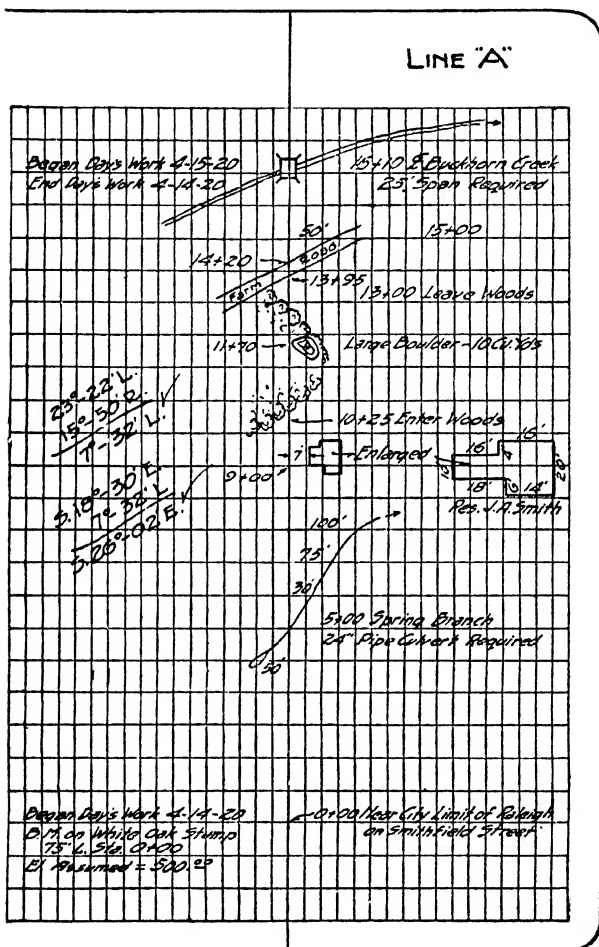 LINE "A"
Began Day's Work 4-15-20
End Day's Work 4-14-20
15+10 ⅊ Buckhorn Creek
25' Span Required
50'
15+00
14+20
Farm Road
13+95
13+00 Leave Woods
11+70
Large Boulder - 10 Cu. Yds
23°-22' L.
15°-50' R.
7°-32' L. ✓
10+25 Enter Woods
7'
Enlarged
9+00
16'
16'
18'
14'
20'
Res. J. A. Smith
S. 18°-30' E.
7°-32' L
S. 26°-02' E. ✓
100'
75'
30'
50'
5+00 Spring Branch
24" Pipe Culvert Required
Began Day's Work 4-14-20
B.M. on White Oak Stump
75' L. Sta. 0+00
El. Assumed = 500.00
0+00 Near City Limit of Raleigh
on Smithfield Street